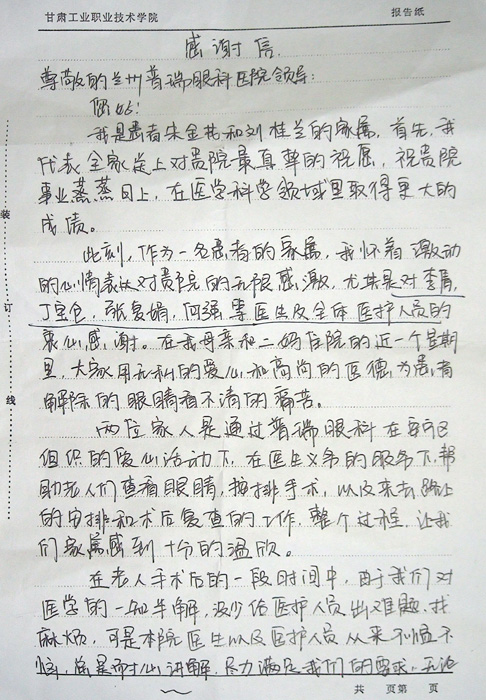 甘肃工业职业技术学院
报告纸
感谢信
尊敬的兰州普瑞眼科医院领导:
您好!
我是患者朱金花和刘桂兰的家属,首先,我
代表全家送上对贵院最真挚的祝愿,祝贵院
事业蒸蒸日上,在医学科学领域里取得更大的
成绩。
此刻,作为一名患者的家属,我怀着激动
的心情表达对贵院的无限感激,尤其是对李青,
丁宝仓,张 娟,何强等医生及全体医护人员的
衷心感谢。在我母亲和二妈住院的近一个星期
里,大家用无私的爱心和高尚的医德,为患者
解除的眼睛看不清的痛苦。
两位家人是通过普瑞眼科在 组
织的爱心活动下,在医生义务的服务下,帮
助老人们查看眼睛,按排手术,以及来去路上
的安排和术后复查的工作,整个过程,让我
们家属感到十份的温欣。
在老人手术后的一段时间中,由于我们对
医学的一知半解,没少给医护人员出难题、找
麻烦,可是本院医生以及医护人员从来不愠不
恼,总是耐心讲解,尽力满足我们的要求,无论
装
订
线
共 页第 页